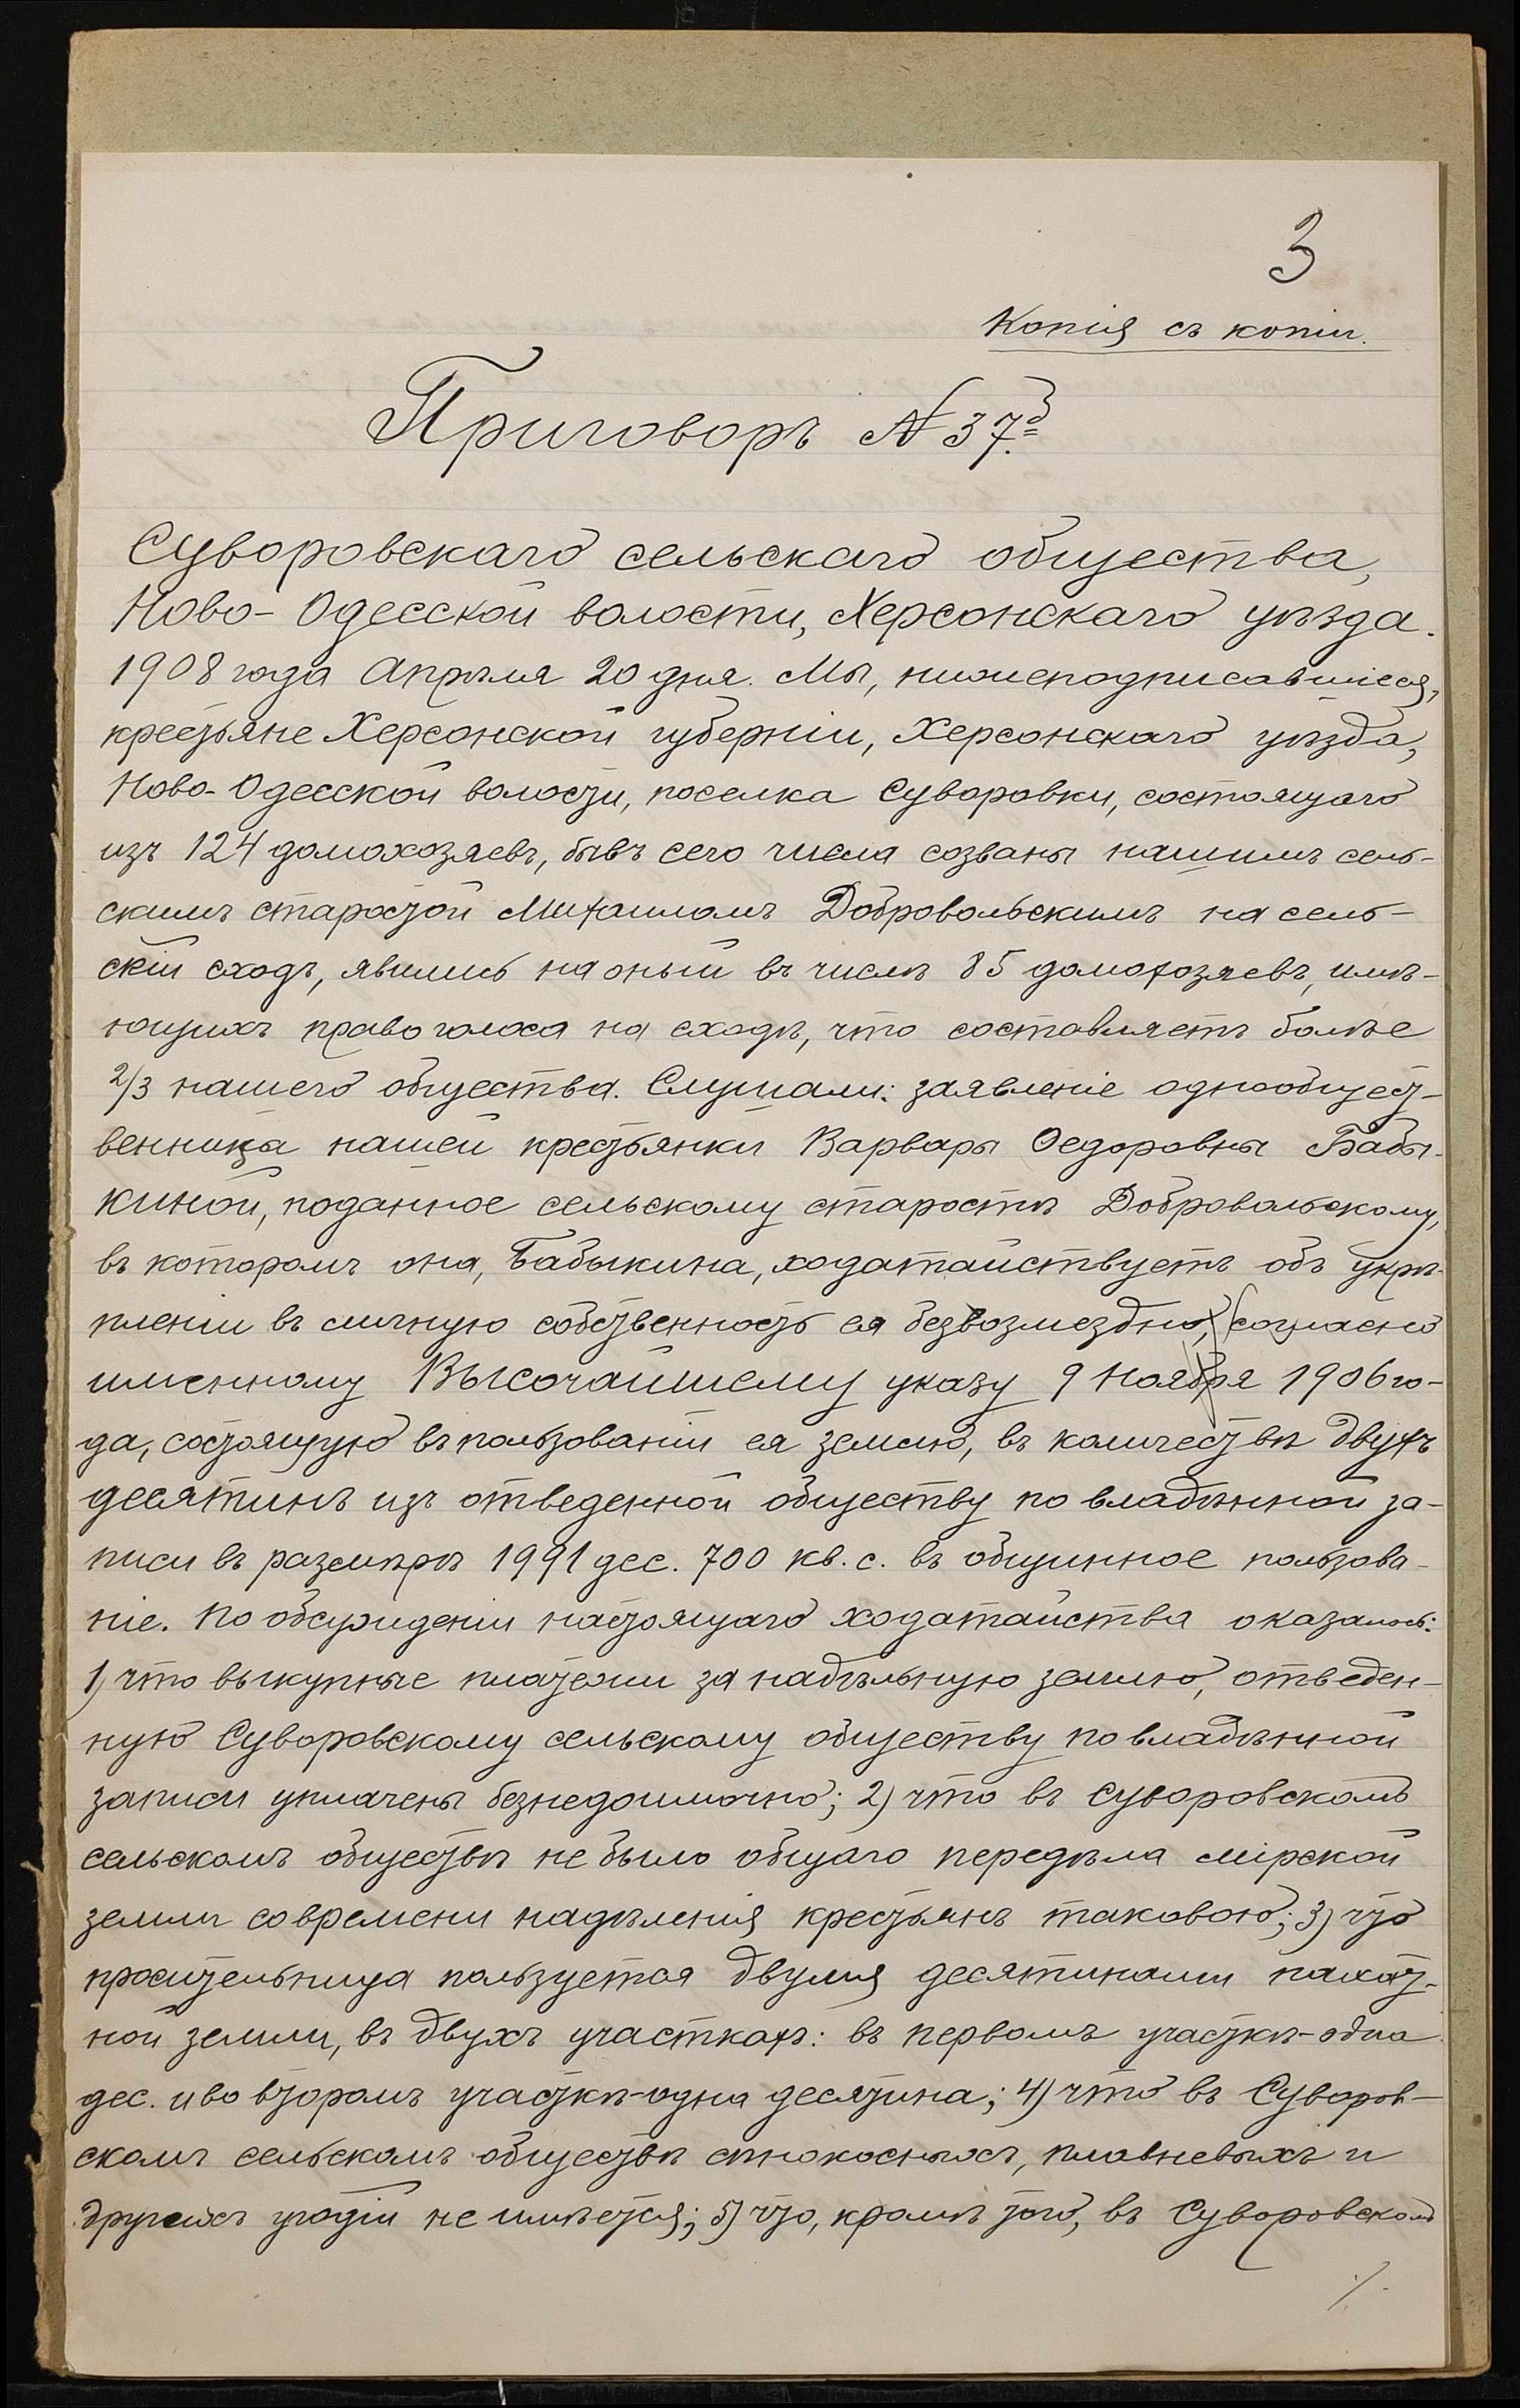 3
Копія съ копіи.
Приговоръ № 37й
Суворовскаго сельскаго общества,
Ново-Одесской волости, Херсонскаго уѣзда.
1908 года Апрѣля 20 дня. Мы, нижеподписавшіеся,
крестьяне Херсонской губерніи, Херсонскаго уѣзда,
Ново-Одесской волости, поселка Суворовки, состоящаго
изъ 124 домохозяевъ, бывъ сего числа созваны нашимъ сель-
скимъ старостой Михаиломъ Добровольскимъ на сель-
скій сходъ, явились на оный въ числѣ 85 домохозяевъ, имѣ-
ющихъ право голоса на сходѣ, что составляетъ болѣе
2/3 нашего общества. Слушали: заявленіе однообщест-
венника нашей крестьянки Варвары Ѳедоровны Бабы-
киной, поданное сельскому старостѣ Добровольскому,
въ которомъ она, Бабыкина, ходатайствуетъ объ укрѣ-
пленіи въ личную собственность ея безвозмездно, согласно
именному Высочайшему указу 9 Ноября 1906 го-
да, состоящую въ пользованіи ея землю, въ количествѣ двухъ
десятинъ изъ отведенной обществу по владѣнной за-
писи въ размѣрѣ 1991 дес. 700 кв. с. въ общинное пользова-
ніе. По обсужденіи настоящаго ходатайства оказалось:
1) что выкупные платежи за надѣльную землю, отведен-
ную Суворовскому сельскому обществу по владѣнной
записи уплачены безнедоимочно; 2) что въ Суворовскомъ
сельскомъ обществѣ не было общаго передѣла мірской
земли со времени надѣленія крестьянъ таковою; 3) что
просительница пользуется двумя десятинами пахат-
ной земли, въ двухъ участкахъ: въ первомъ участкѣ-одна
дес. и во второмъ участкѣ-одна десятина; 4) что въ Суворов-
скомъ сельскомъ обществѣ сѣнокосныхъ, плавневыхъ и
другихъ угодій не имѣется; 5) что, кромѣ того, въ Суворовскомъ
./.